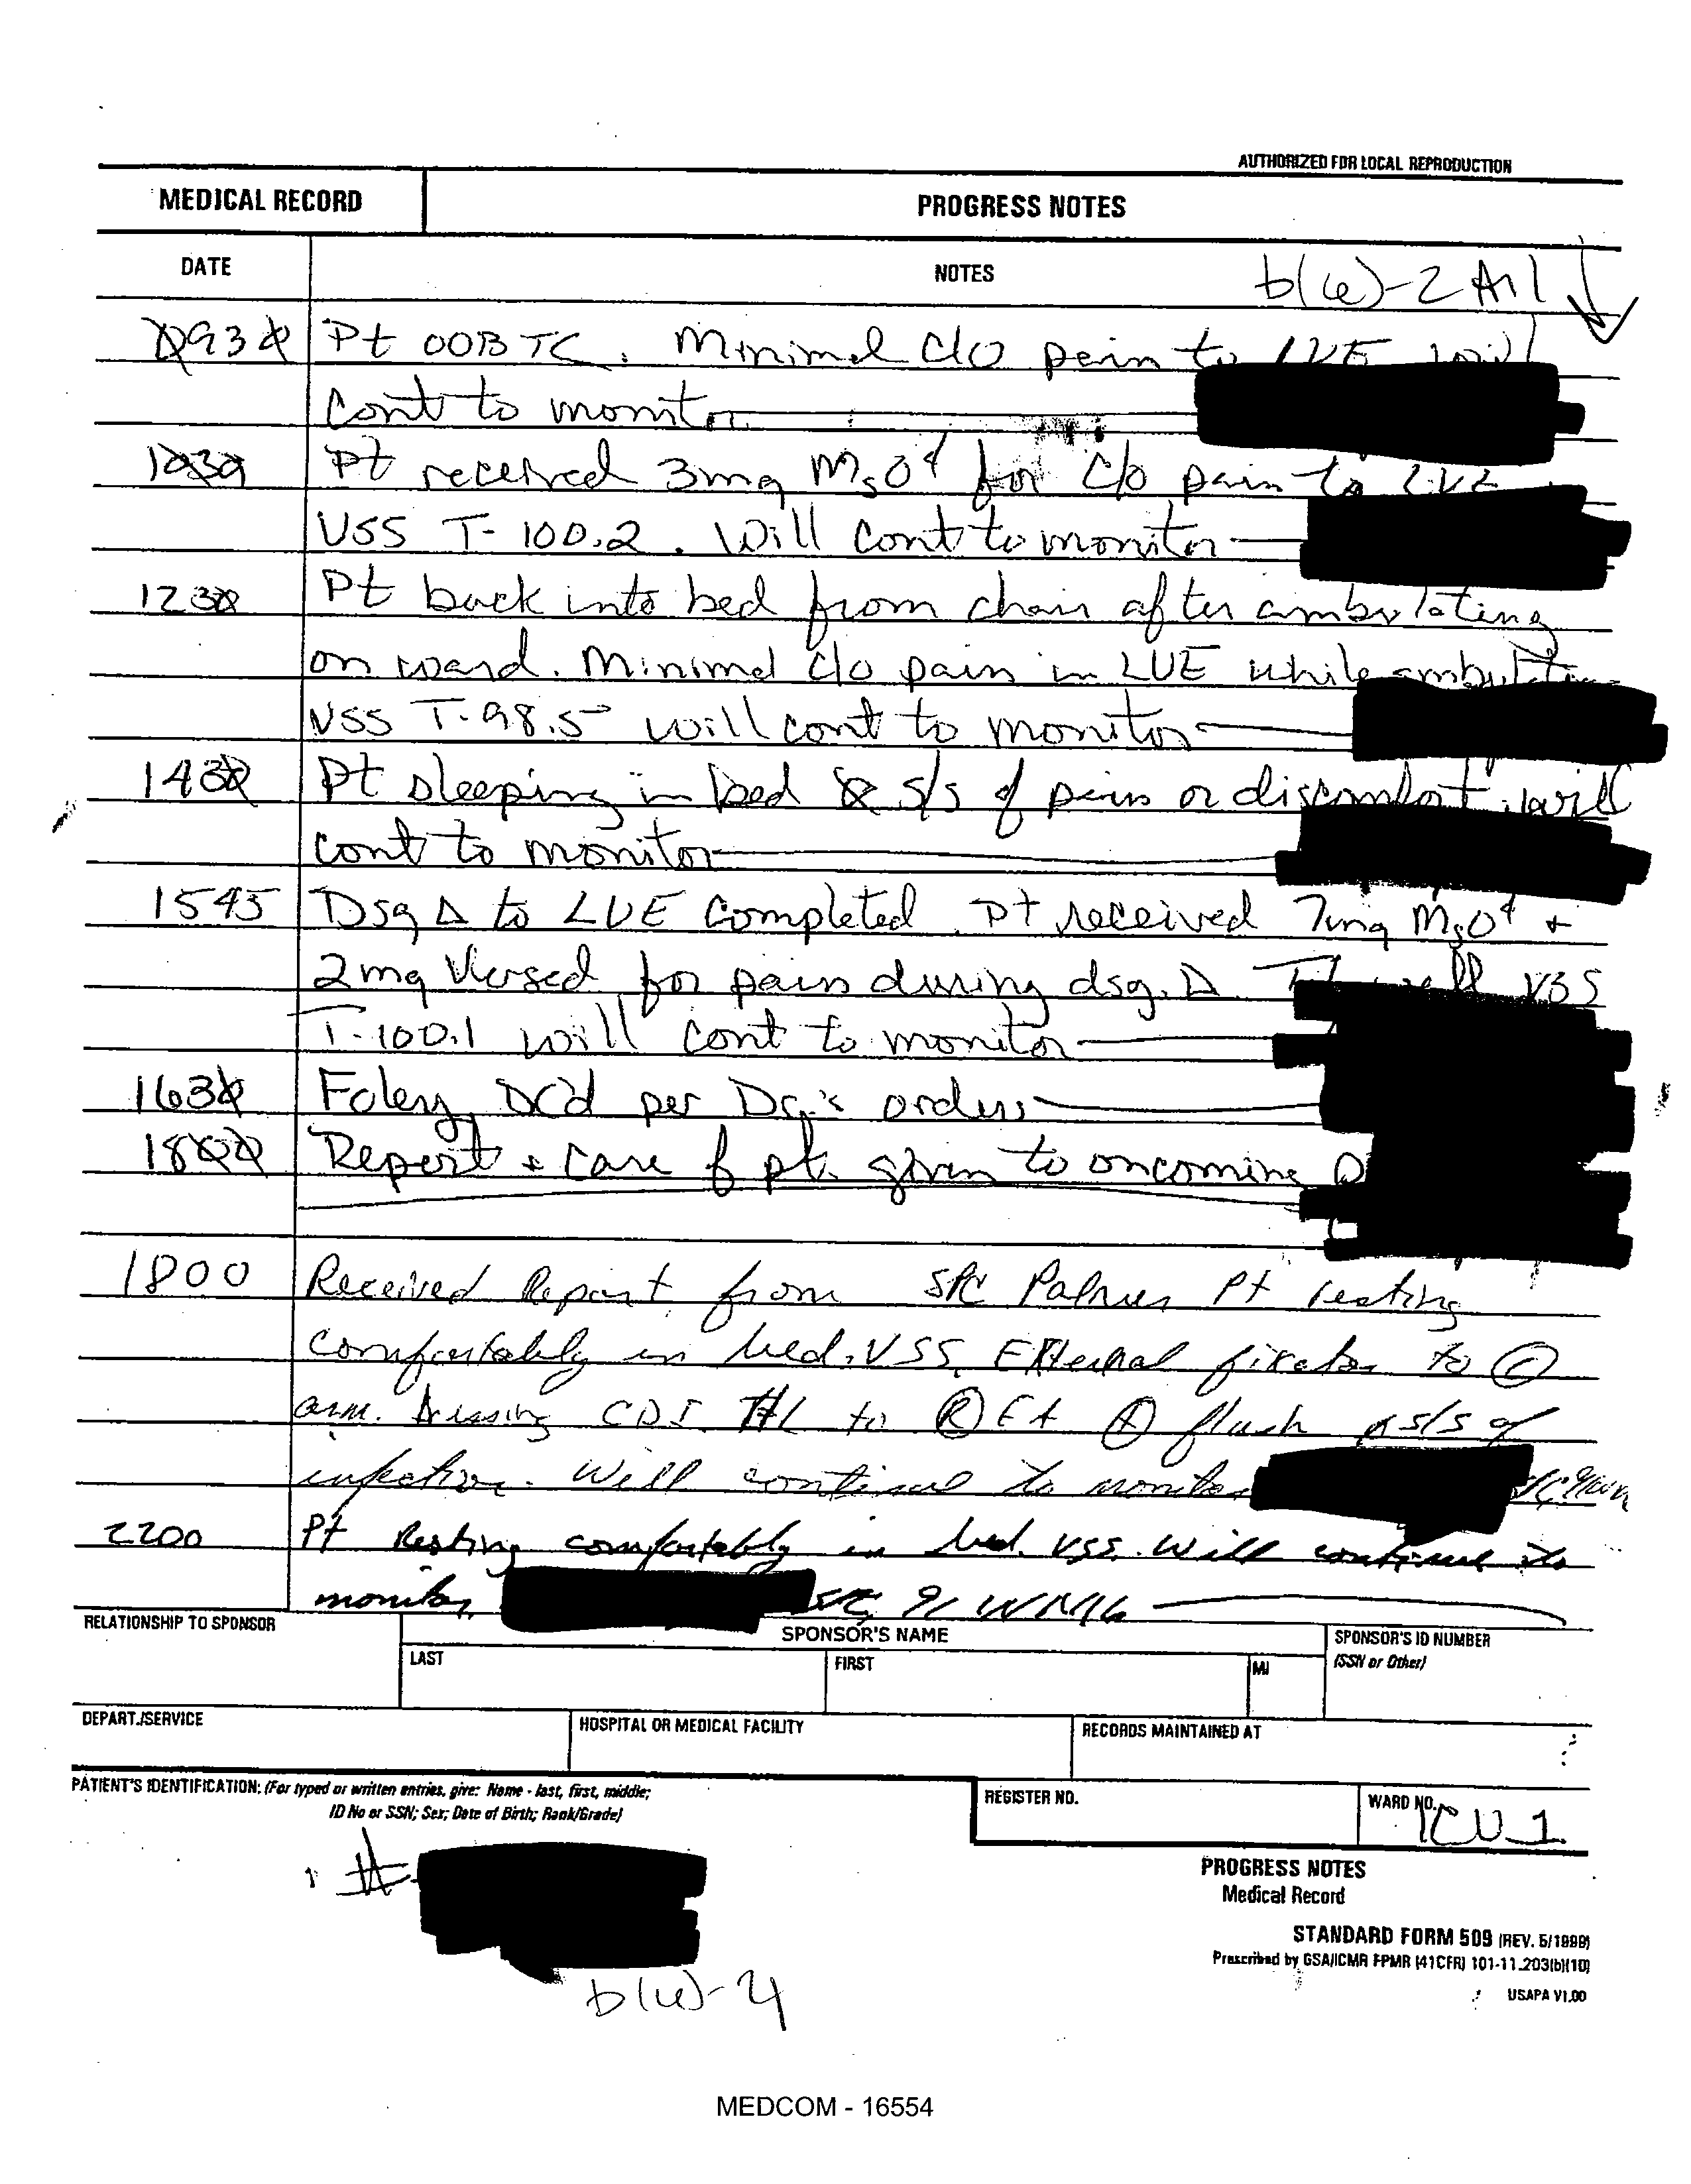 AUTHORIZED FOR LOCAL REPRODUCTION
MEDICAL RECORD PROGRESS NOTES
DATE NOTES b(6)-2 All ↓
0930 Pt OOB TC. Minimal c/o pain to LUE will
cont to monitor
1030 Pt received 3mg MsO4 for c/o pain to LUE
VSS T-100.2. Will cont to monitor
1230 Pt back into bed from chair after ambulating
on ward. Minimal c/o pain in LUE while ambulating
VSS T-98.5 will cont to monitor
1430 Pt sleeping in bed Ø s/s of pain or discomfort. will
cont to monitor
1545 Dsg Δ to LUE completed. Pt received 7mg MsO4 +
2mg Versed for pain during dsg. Δ. VSS
T-100.1 will cont to monitor
1630 Foley DC'd per Dr.'s orders
1800 Report + care of pt. given to oncoming
1800 Received Report from SPC Palmer Pt resting
comfortably in bed. VSS. External fixator to Ⓛ
arm. Dressing CDI. H/L to Ⓡ ⊕ flush Ø s/s of
infection. Will continue to monitor
2200 Pt Resting comfortably in bed. VSS. Will continue to
monitor SPC 91WM6
RELATIONSHIP TO SPONSOR SPONSOR'S NAME SPONSOR'S ID NUMBER
LAST FIRST MI (SSN or Other)
DEPART./SERVICE HOSPITAL OR MEDICAL FACILITY RECORDS MAINTAINED AT
PATIENT'S IDENTIFICATION: (For typed or written entries, give: Name - last, first, middle;
ID No or SSN; Sex; Date of Birth; Rank/Grade)
REGISTER NO. WARD NO. ICU 1
#
b(6)-4
PROGRESS NOTES
Medical Record
STANDARD FORM 509 (REV. 5/1999)
Prescribed by GSA/ICMR FPMR (41CFR) 101-11.203(b)(10)
USAPA V1.00
MEDCOM - 16554